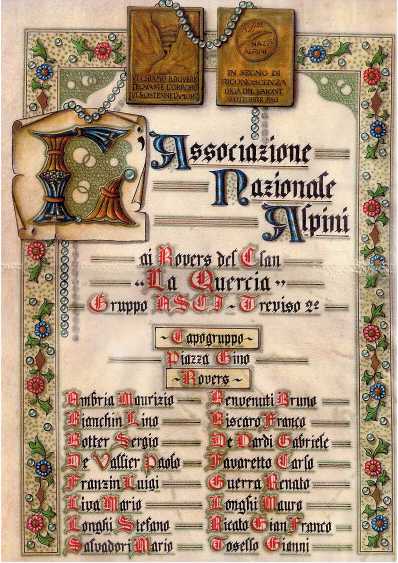 IN SEGNO DI
RICONOSCENZA
L'Associazione
Nazionale
Alpini
ai Rovers del Clan
"La Quercia"
Gruppo ASCI - Treviso 2º
Capogruppo
Piazza Gino
Rovers
Ambria Maurizio
Benvenuti Bruno
Bianchin Lino
Biscaro Franco
Botter Sergio
De Nardi Gabriele
De Vallier Paolo
Favoretto Carlo
Franzin Luigi
Guerra Renato
Liva Mario
Longhi Mauro
Longhi Stefano
Ricato Gian Franco
Salvadori Mario
Tosello Gianni